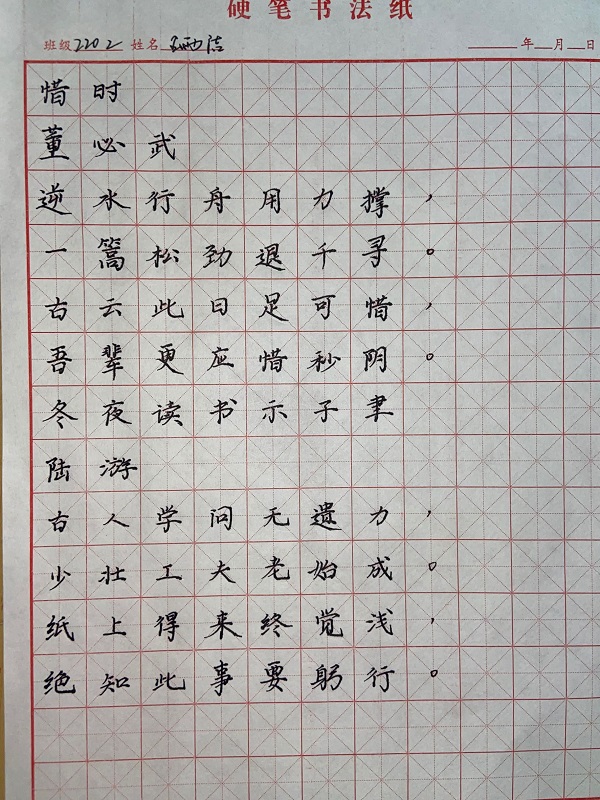 硬笔书法纸
班级 2202 姓名 年 月 日
惜时
董必武
逆水行舟用力撑，
一篙松劲退千寻。
古云此日足可惜，
吾辈更应惜秒阴。
冬夜读书示子聿
陆游
古人学问无遗力，
少壮工夫老始成。
纸上得来终觉浅，
绝知此事要躬行。